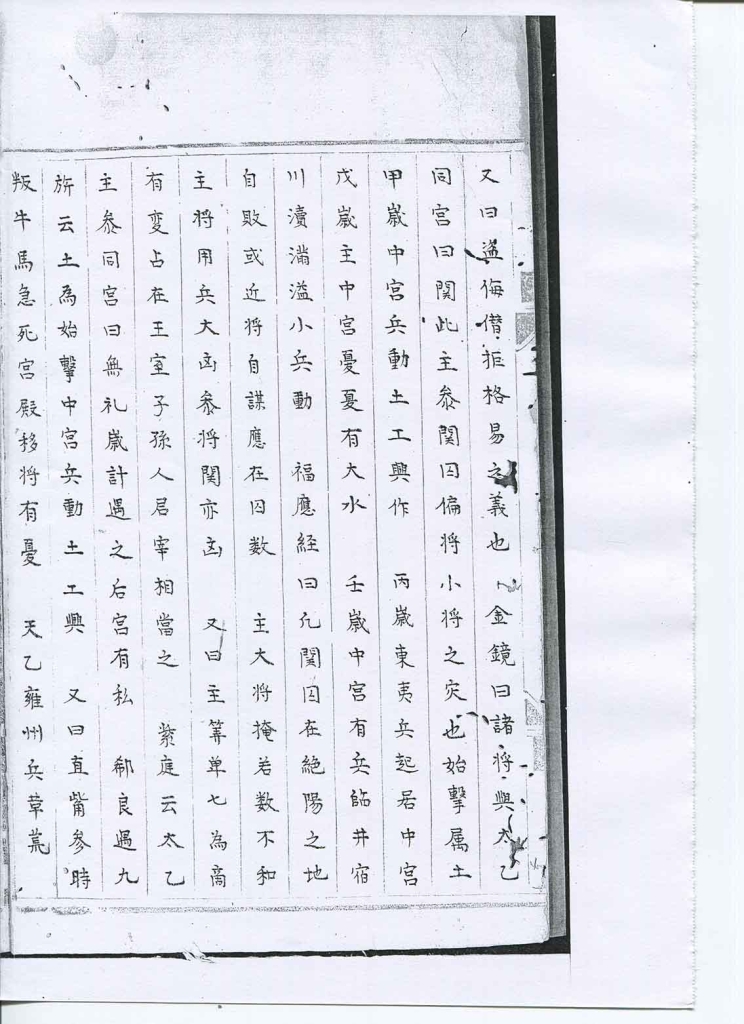 又曰盗侮僣拒格易之義也 金鏡曰諸将與太乙
同宫曰関此主叅関囚偏将小将之灾也始擊属土
甲嵗中宫兵動土工興作 丙嵗東夷兵起居中宫
戊嵗主中宫憂憂有大水 壬嵗中宫有兵臨井宿
川瀆満溢小兵動 福應経曰凢関囚在絶陽之地
自敗或近将自謀應在囚数 主大将掩若数不和
主将用兵大凶叅将関亦凶 又曰主筭单七為商
有变占在王室子孫人君宰相當之 紫庭云太乙
主叅同宫曰無礼嵗計遇之后宫有私 郗良遇九
旂云土為始擊中宫兵動土工興 又曰直觜参時
叛牛馬急死宫殿移将有憂 天乙雍州兵草荒